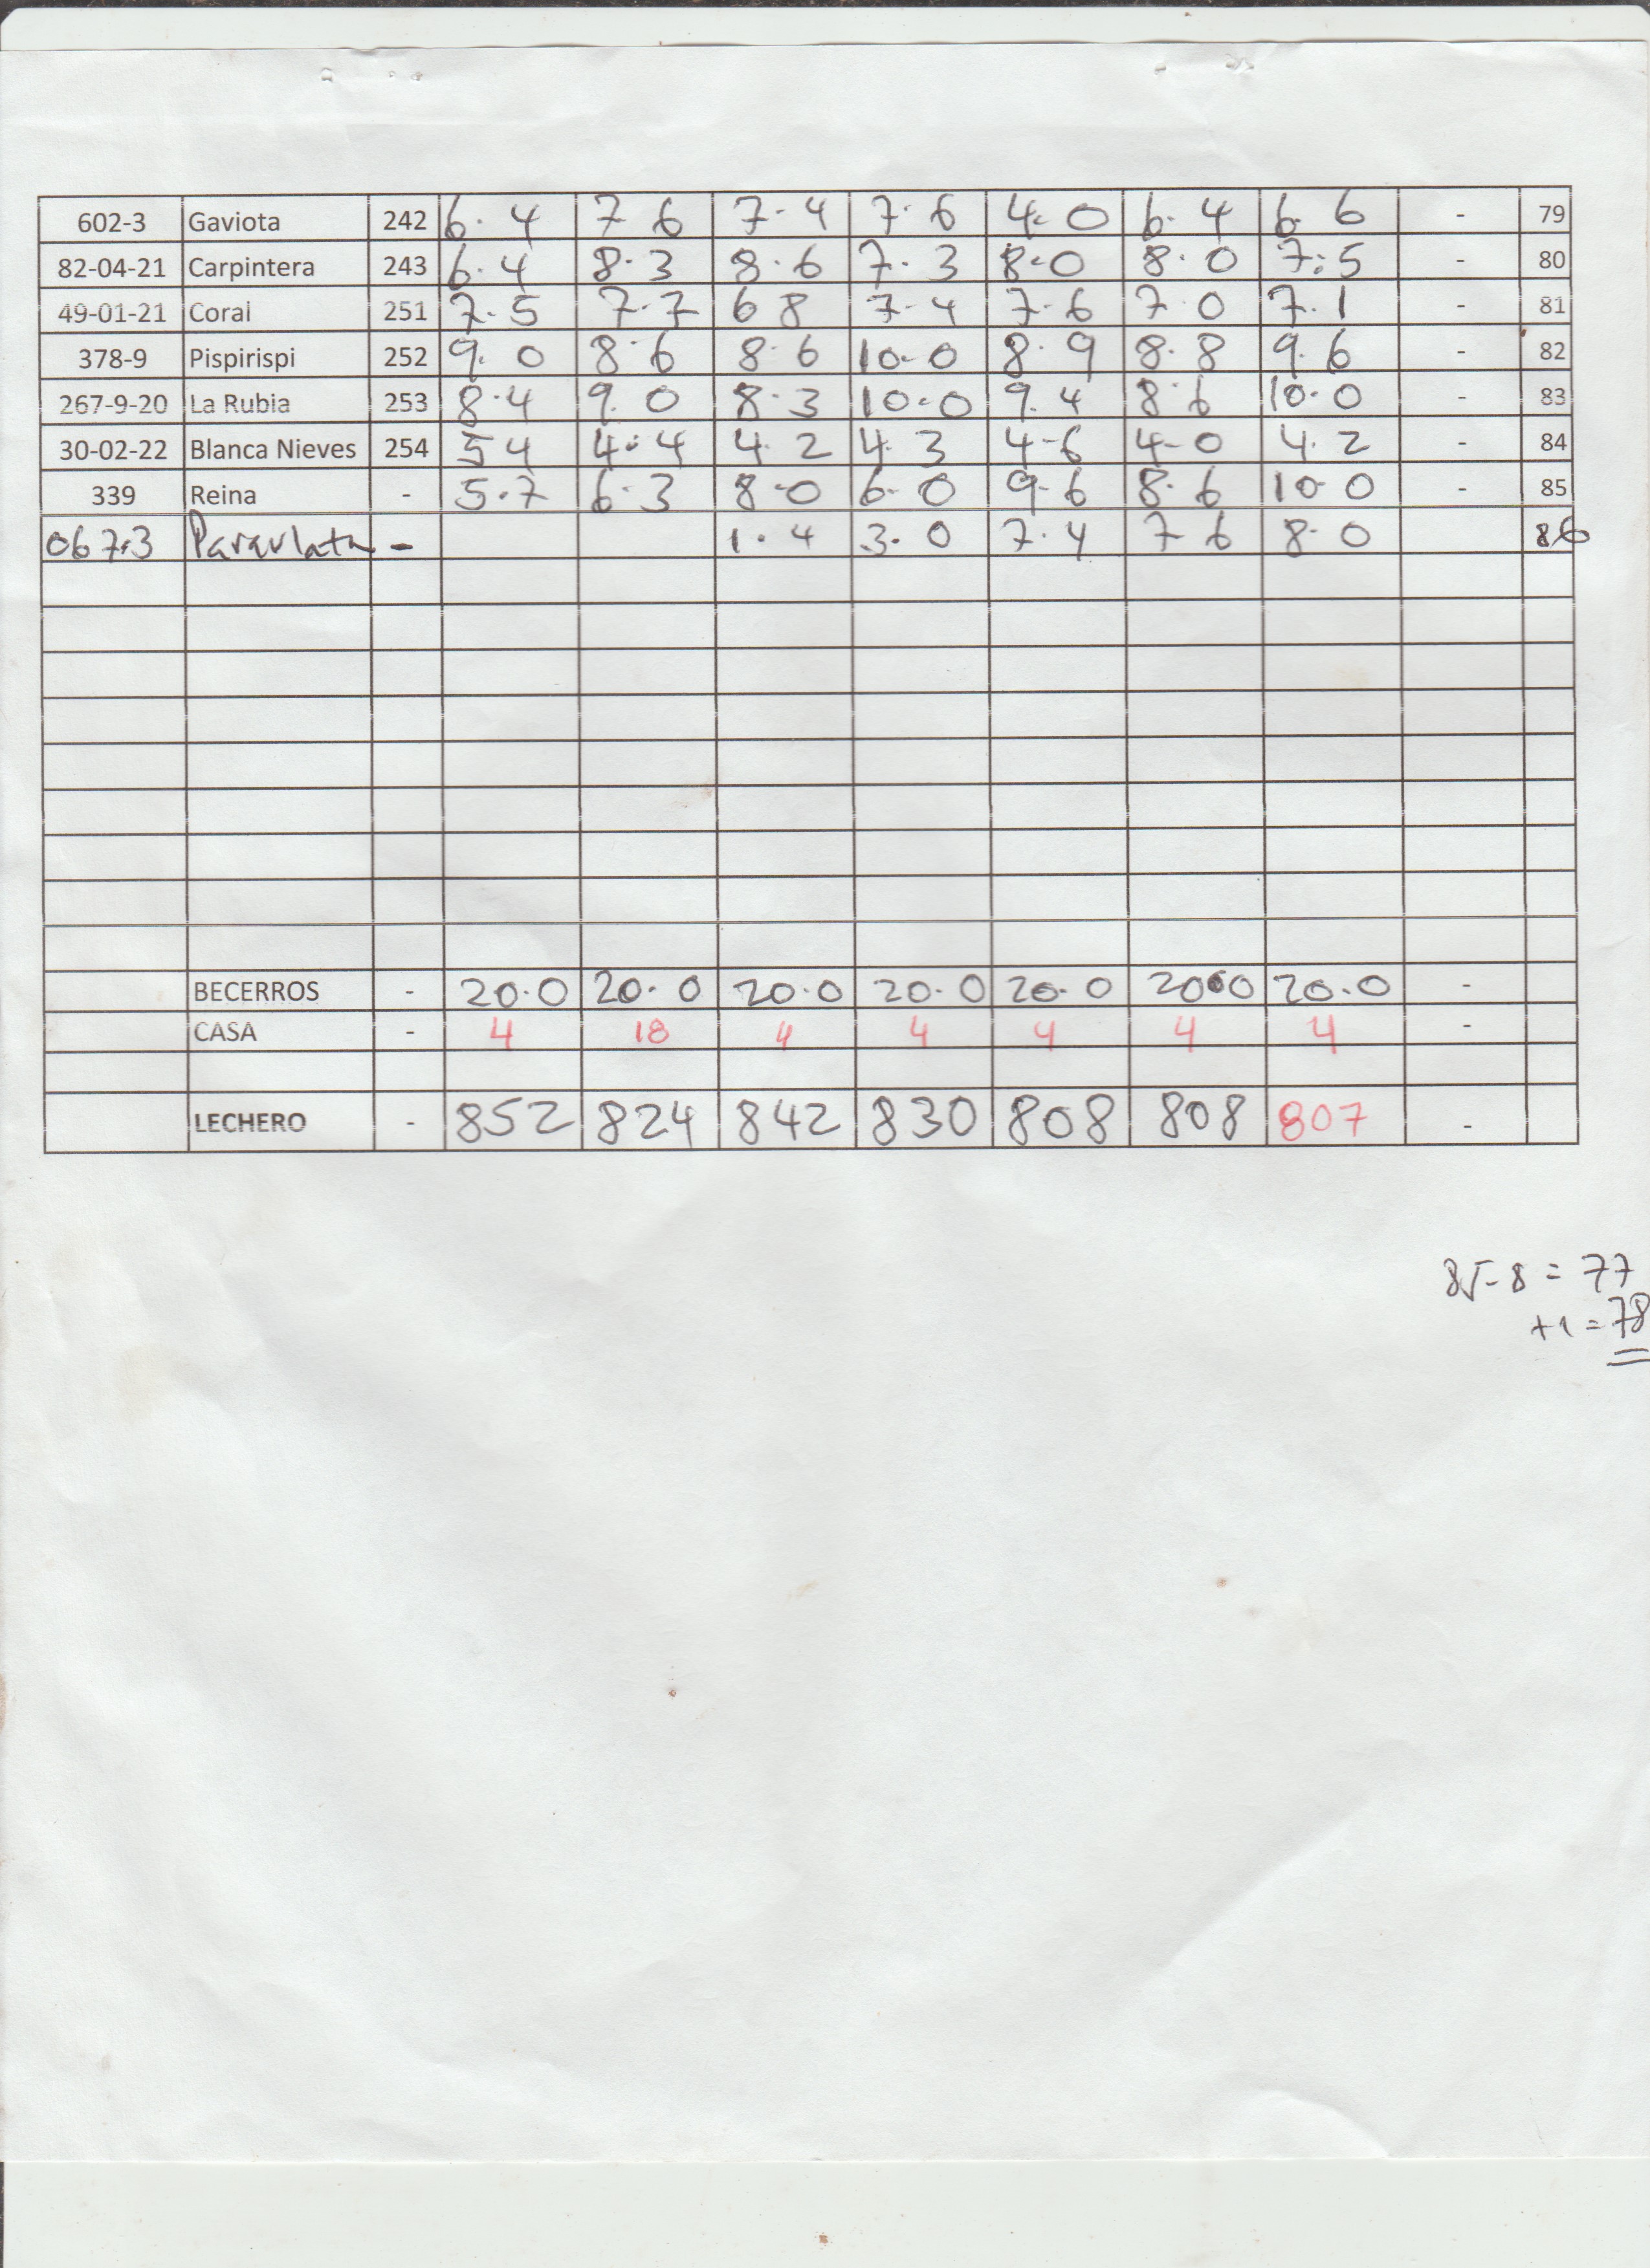 602-3 Gaviota 242 6.4 7 6 7.4 7.6 4.0 6.4 6.6 - 79
82-04-21 Carpintera 243 6.4 8.3 8.6 7.3 8.0 8.0 7.5 - 80
49-01-21 Coral 251 7.5 7.7 6 8 7.4 7.6 7 0 7.1 - 81
378-9 Pispirispi 252 9.0 8.6 8.6 10.0 8.9 8.8 9.6 - 82
267-9-20 La Rubia 253 8.4 9.0 8.3 10.0 9.4 8.6 10.0 - 83
30-02-22 Blanca Nieves 254 5 4 4.4 4.2 4.3 4-6 4-0 4.2 - 84
339 Reina - 5.7 6.3 8.0 6.0 9-6 8.6 10.0 - 85
067.3 Paraulata - 1.4 3.0 7.4 7 6 8.0 86
BECERROS - 20.0 20.0 20.0 20.0 20.0 20.0 20.0 -
CASA - 4 18 4 4 4 4 4 -
LECHERO - 852 824 842 830 808 808 807 -
85-8 = 77
+1 = 78